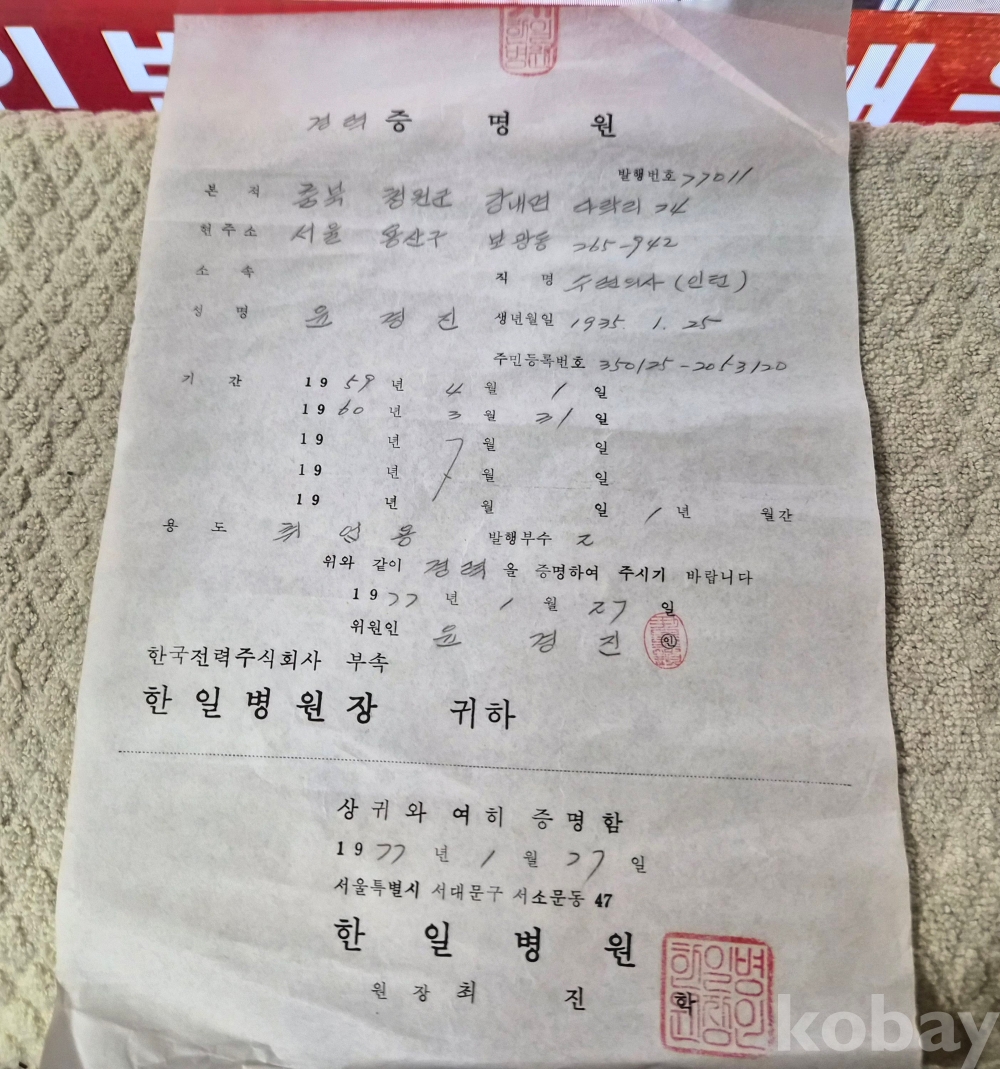 한일
병원
경력 증 명 원
발행번호 77011
본 적 충북 청원군 강내면 사락리 24
현주소 서울 용산구 보광동 265-942
소 속 직 명 수련의사 (인턴)
성 명 윤 경 진 생년월일 1935. 1. 25
주민등록번호 350125-2053120
기 간 1959년 4월 1일
1960년 3월 31일
19 년 월 일
19 년 월 일
19 년 월 일 1년 월간
용 도 취 업 용 발행부수 2
위와 같이 경력을 증명하여 주시기 바랍니다
1977년 1월 27일
위원인 윤 경 진 인
한국전력주식회사 부속
한일병원장 귀하
상귀와 여히 증명함
1977년 1월 27일
서울특별시 서대문구 서소문동 47
한 일 병 원
원 장 최 진 화
한일병
원장인
kobay